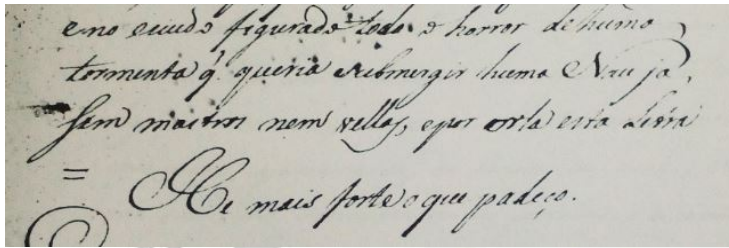 e no escudo figurado todo o horror de huma
tormenta q. queria submergir huma Nau ja,
sem mastros nem vellas, e por orla esta Letra
=
He mais forte o que padeço.